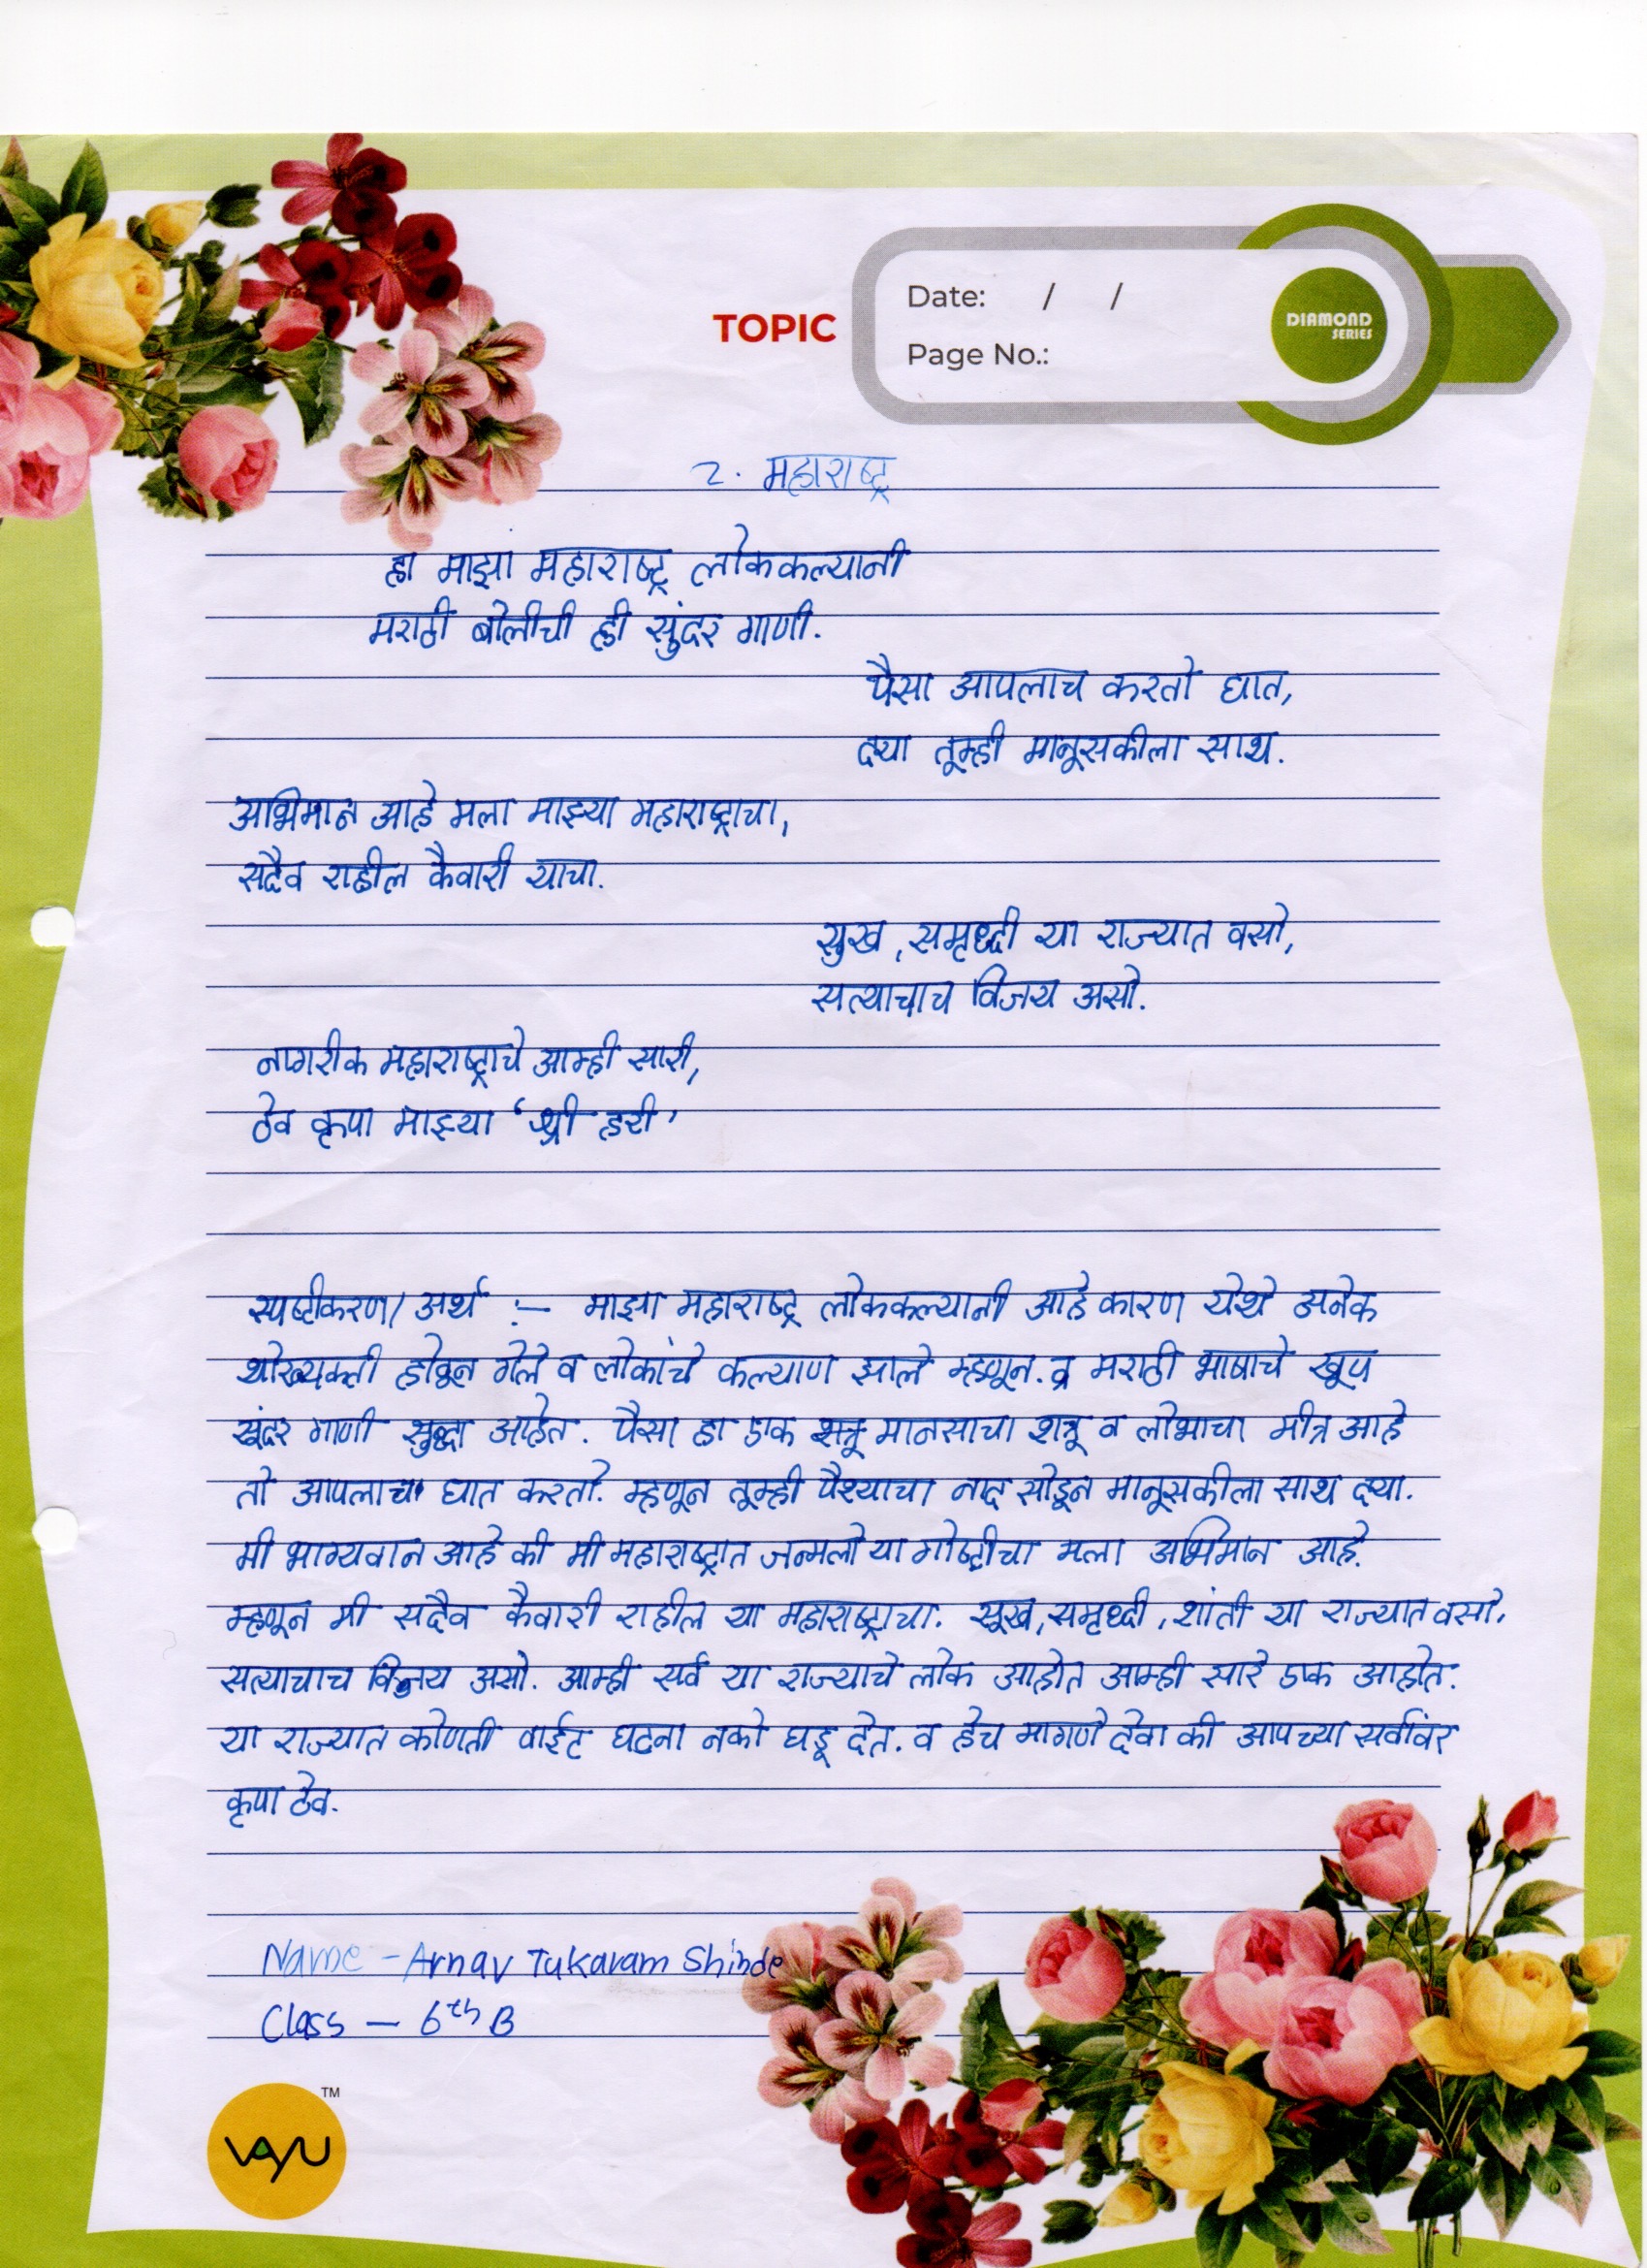 TOPIC
Date: / /
Page No.:
DIAMOND
SERIES
२. महाराष्ट्र
हा माझा महाराष्ट्र लोककल्यानी
मराठी बोलीची ही सुंदर गाणी.
पैसा आपलाच करतो घात,
द्या तूम्ही मानूसकीला साथ.
अभिमान आहे मला माझ्या महाराष्ट्राचा,
सदैव राहील कैवारी याचा.
सुख, समृध्दी या राज्यात वसो,
सत्याचाच विजय असो.
नागरीक महाराष्ट्राचे आम्ही सारी,
ठेव कृपा माझ्या ‘श्री हरी’
स्पष्टीकरण/ अर्थ :- माझा महाराष्ट्र लोककल्यानी आहे कारण येथे अनेक
थोरव्यक्ती होवून गेले व लोकांचे कल्याण झाले म्हणून. व मराठी भाषाचे खूप
सूंदर गाणी सुद्धा आहेत. पैसा हा एक मानसाचा शत्रू व लोभाचा मीत्र आहे
तो आपलाच घात करतो. म्हणून तूम्ही पैश्याचा नाद सोडून मानूसकीला साथ द्या.
मी भाग्यवान आहे की मी महाराष्ट्रात जन्मलो या गोष्टीचा मला अभिमान आहे.
म्हणून मी सदैव कैवारी राहील या महाराष्ट्राचा. सूख, समृध्दी, शांती या राज्यात वसो,
सत्याचाच विजय असो. आम्ही सर्व या राज्याचे लोक आहोत आम्ही सारे एक आहोत.
या राज्यात कोणती वाईट घटना नको घडू देत. व हेच मागणे देवा की आपच्या सर्वांवर
कृपा ठेव.
Name - Arnav Tukaram Shinde
Class - 6th B
VAYU
TM